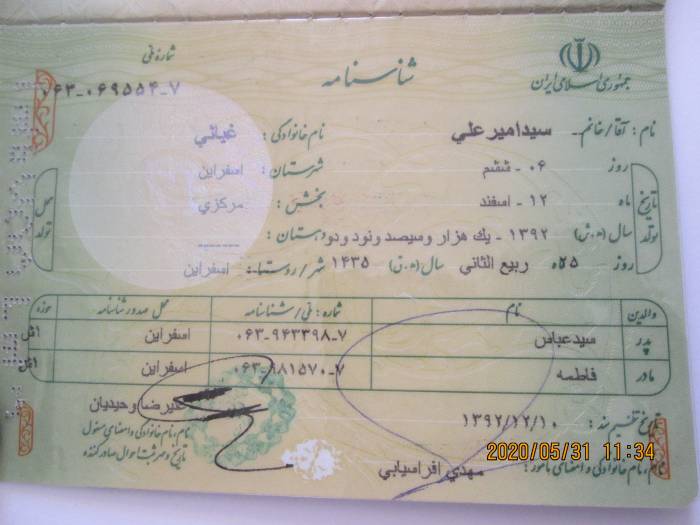 شماره ملی
شناسنامه
جمهوری اسلامی ایران
۰۶۳-۰۶۹۵۵۴-۷
نام : آقا/خانم سیدامیرعلي
نام خانوادگی : غیاثي
روز ۰۶ - ششم
شهرستان : اسفراین
ماه ۱۲ - اسفند
بخش : مرکزي
تاریخ تولد
محل تولد
سال (ه.ش) ۱۳۹۲ - یك هزار وسیصد ونود ودو
دهستان : ------
روز ۲۵ ماه ربیع الثاني سال (ه.ق) ۱۴۳۵
شهر/روستا : اسفراین
والدین نام شماره : ملی/شناسنامه محل صدور شناسنامه حوزه
پدر سیدعباس ۰۶۳-۹۴۳۳۹۸-۷ اسفراین
مادر فاطمه ۰۶۳-۹۸۱۵۷۰-۷ اسفراین
تاریخ تنظیم سند : ۱۳۹۲/۱۲/۱۰
علیرضا وحیدیان
نام، نام خانوادگی و امضای مسئول
تاریخ و مهر ثبت احوال صادرکننده
نام، نام خانوادگی و امضای مأمور : مهدي افراسیابي
2020/05/31 11:34